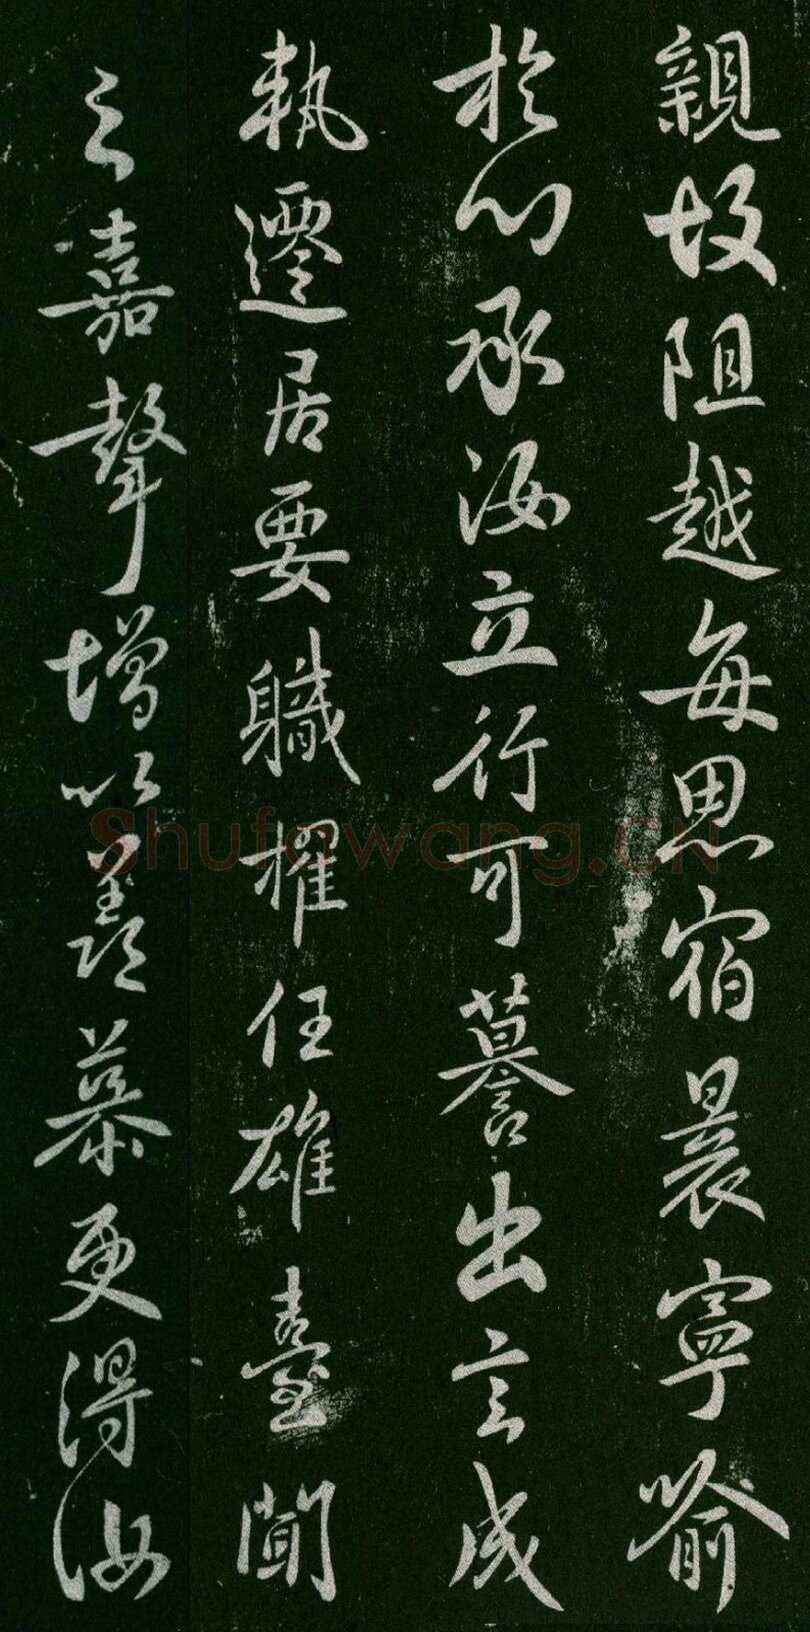 親故阻越每思宿晨寧喻
於心承汝立行可譽出言成
軌遷居要職擢任雄臺聞
之嘉聲增以羨慕更得汝
Shufawang.CN